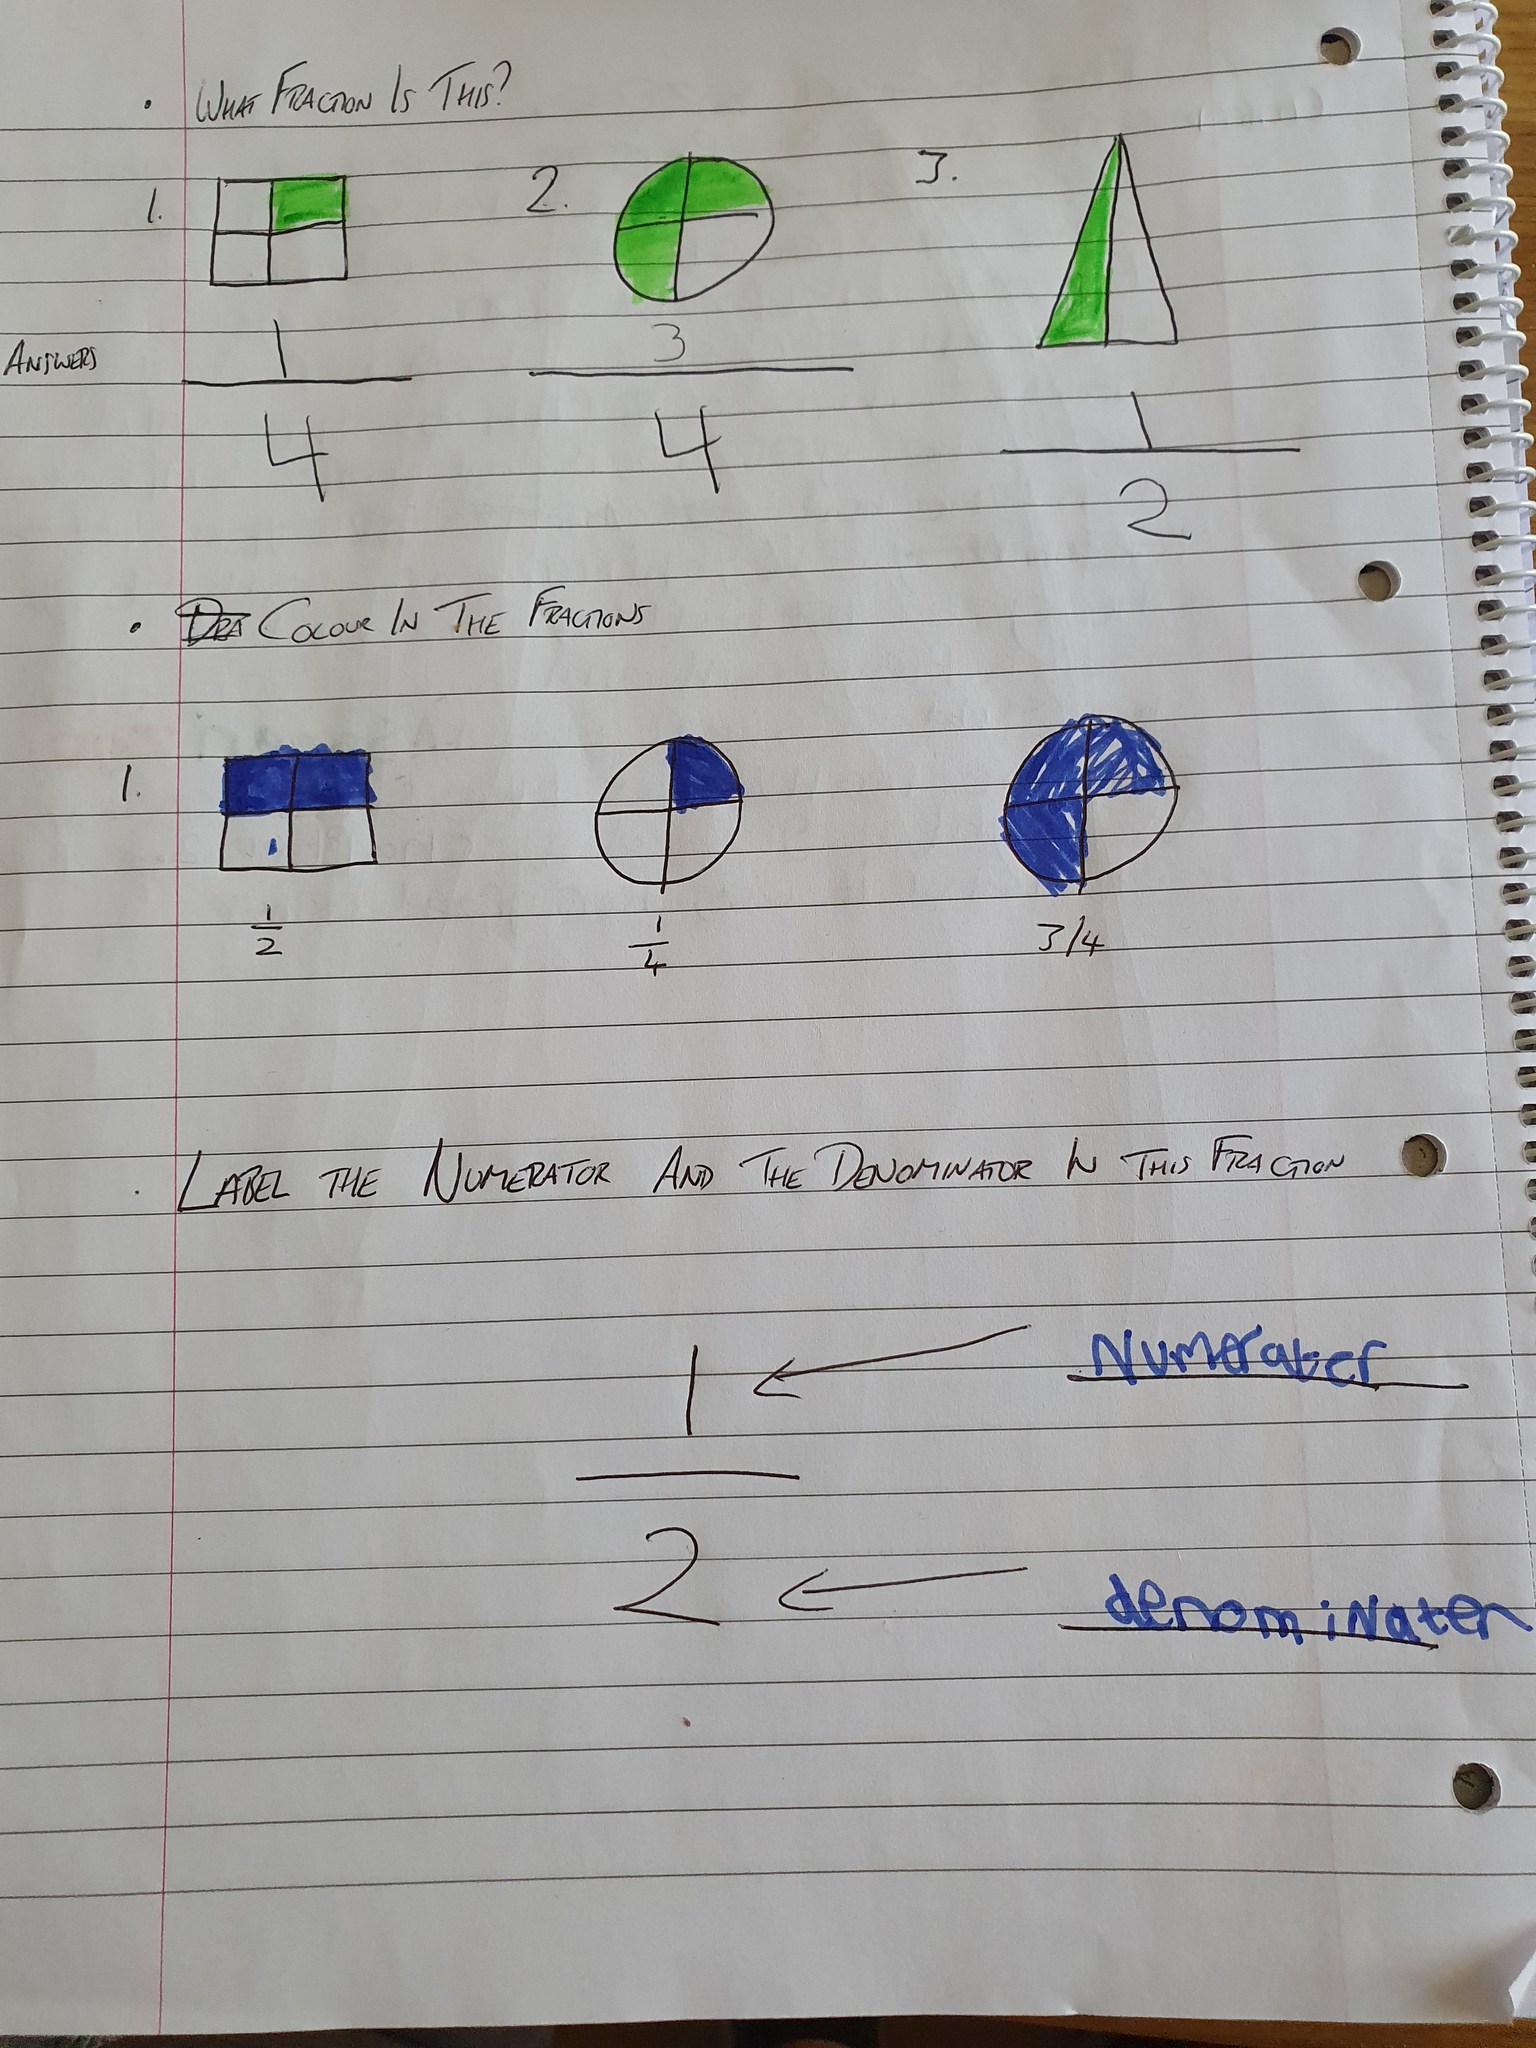 • WHAT FRACTION IS THIS?
1. 2. 3.
ANSWERS
1
4
3
4
1
2
• DRA COLOUR IN THE FRACTIONS
1.
1
2
1
4
3/4
• LABEL THE NUMERATOR AND THE DENOMINATOR IN THIS FRACTION
1 ← Numerater
2 ← denominater